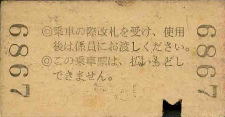 6867
◎乗車の際改札を受け、使用
後は係員にお渡しください。
◎この乗車票は、払いもどし
できません。
6867